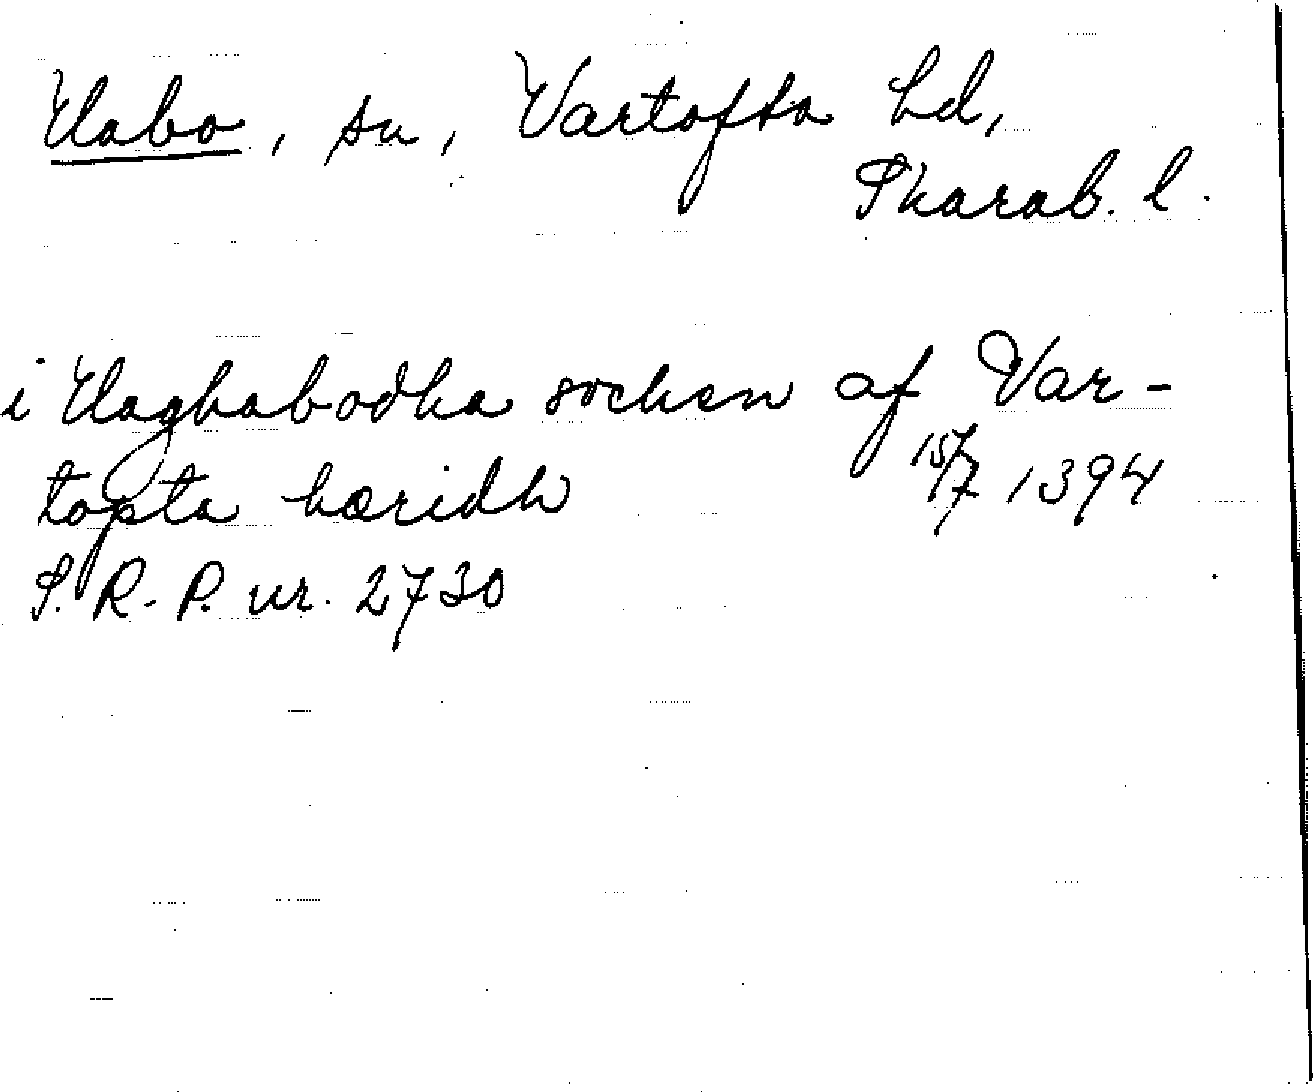 Habo, sn, Vartofta hd,
Skarab. l.
i Haghabodha sochen af Var-
topta hæridh 15/7 1394
S.R.P. nr. 2730